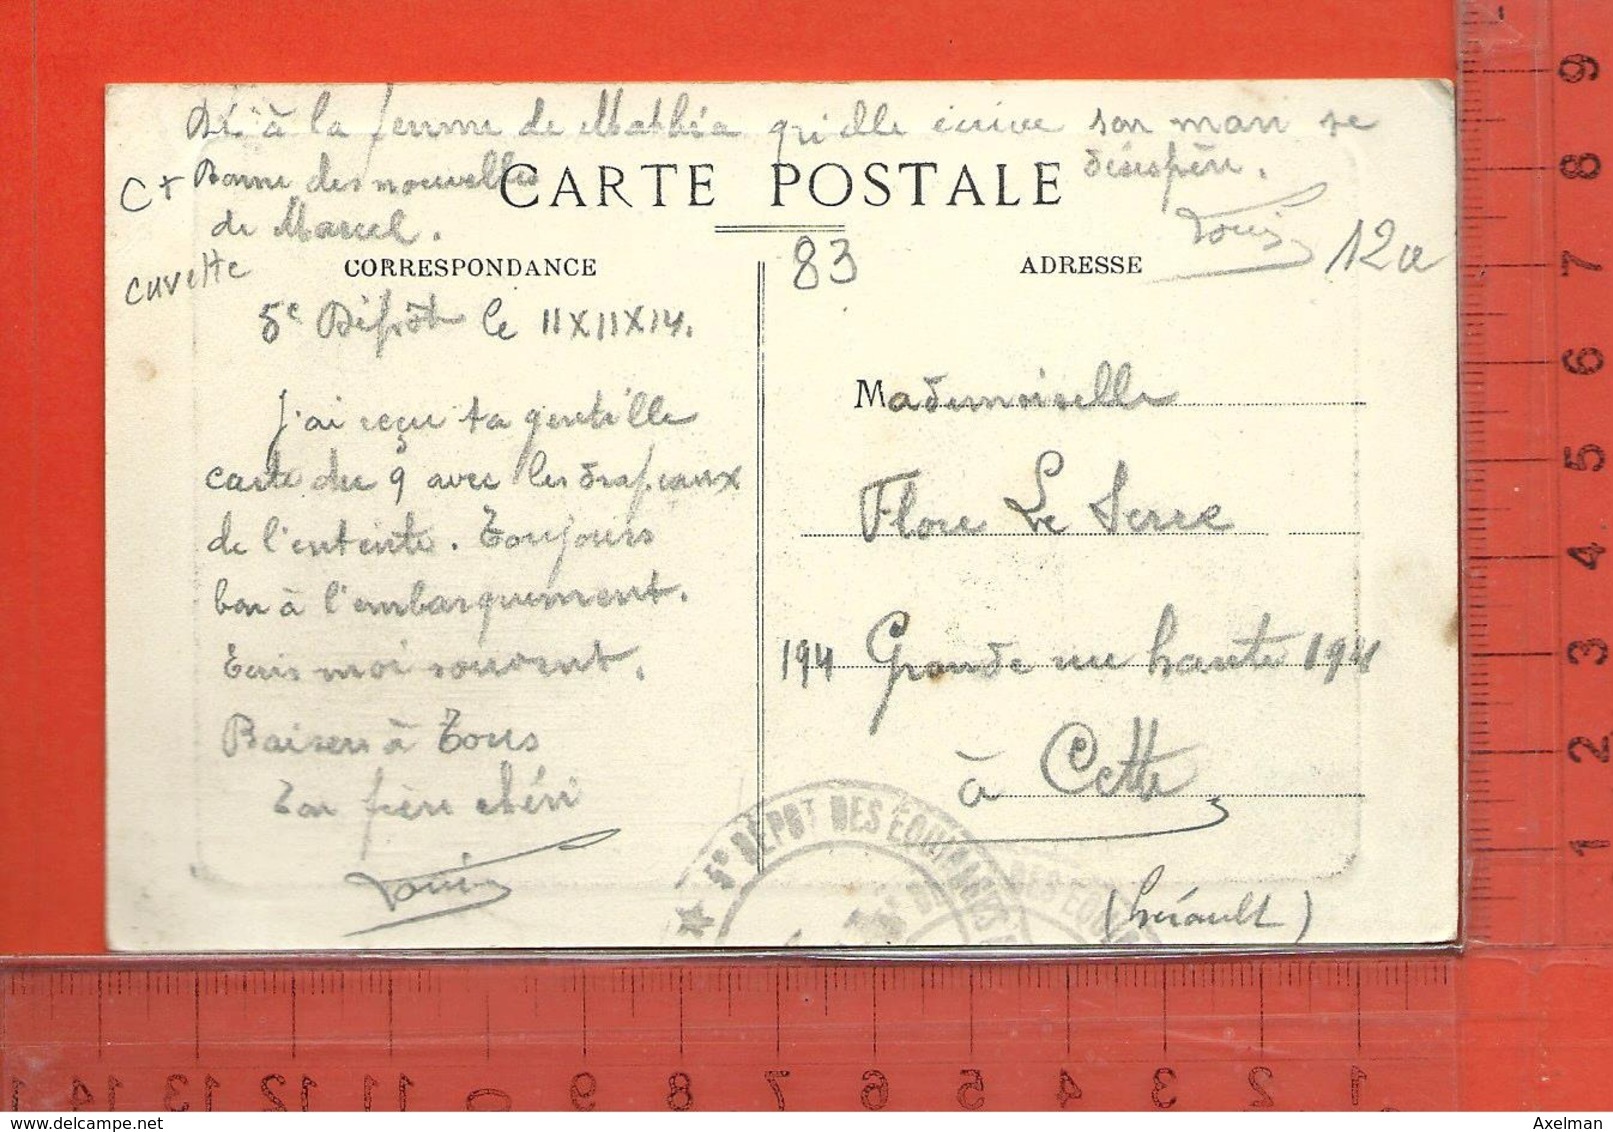 Dis à la femme de Mathia qu'elle écrive son mari se
désespère.
Louis
Bonne des nouvelles
de Marcel.
C+
cuvette
CARTE POSTALE
83
12a
CORRESPONDANCE
ADRESSE
5e Dépôt le 11X11X14.
J'ai reçu ta gentille
carte du 9 avec les drapeaux
de l'entente. Toujours
bon à l'embarquement.
Ecris moi souvent.
Baisers à Tous
Ton frère chéri
Louis
Mademoiselle
Flore Le Serre
194 Grande rue haute 194
à Cette
(hérault)
5e DÉPOT DES ÉQUIPAGES
DES EQUI
9
8
7
6
5
4
3
2
1
14 13 12 11 10 9 8 7 6 5 4 3 2 1
www.delcampe.net
Axelman